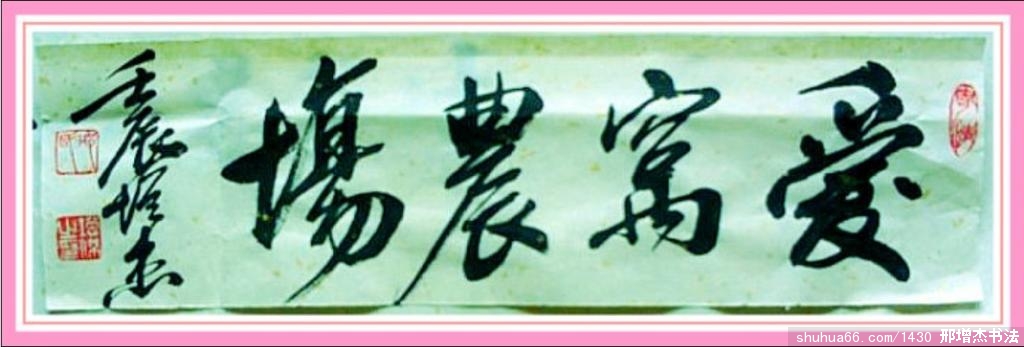 愛寓農場
壬辰增杰
shuhua66.com/1430 邢增杰书法